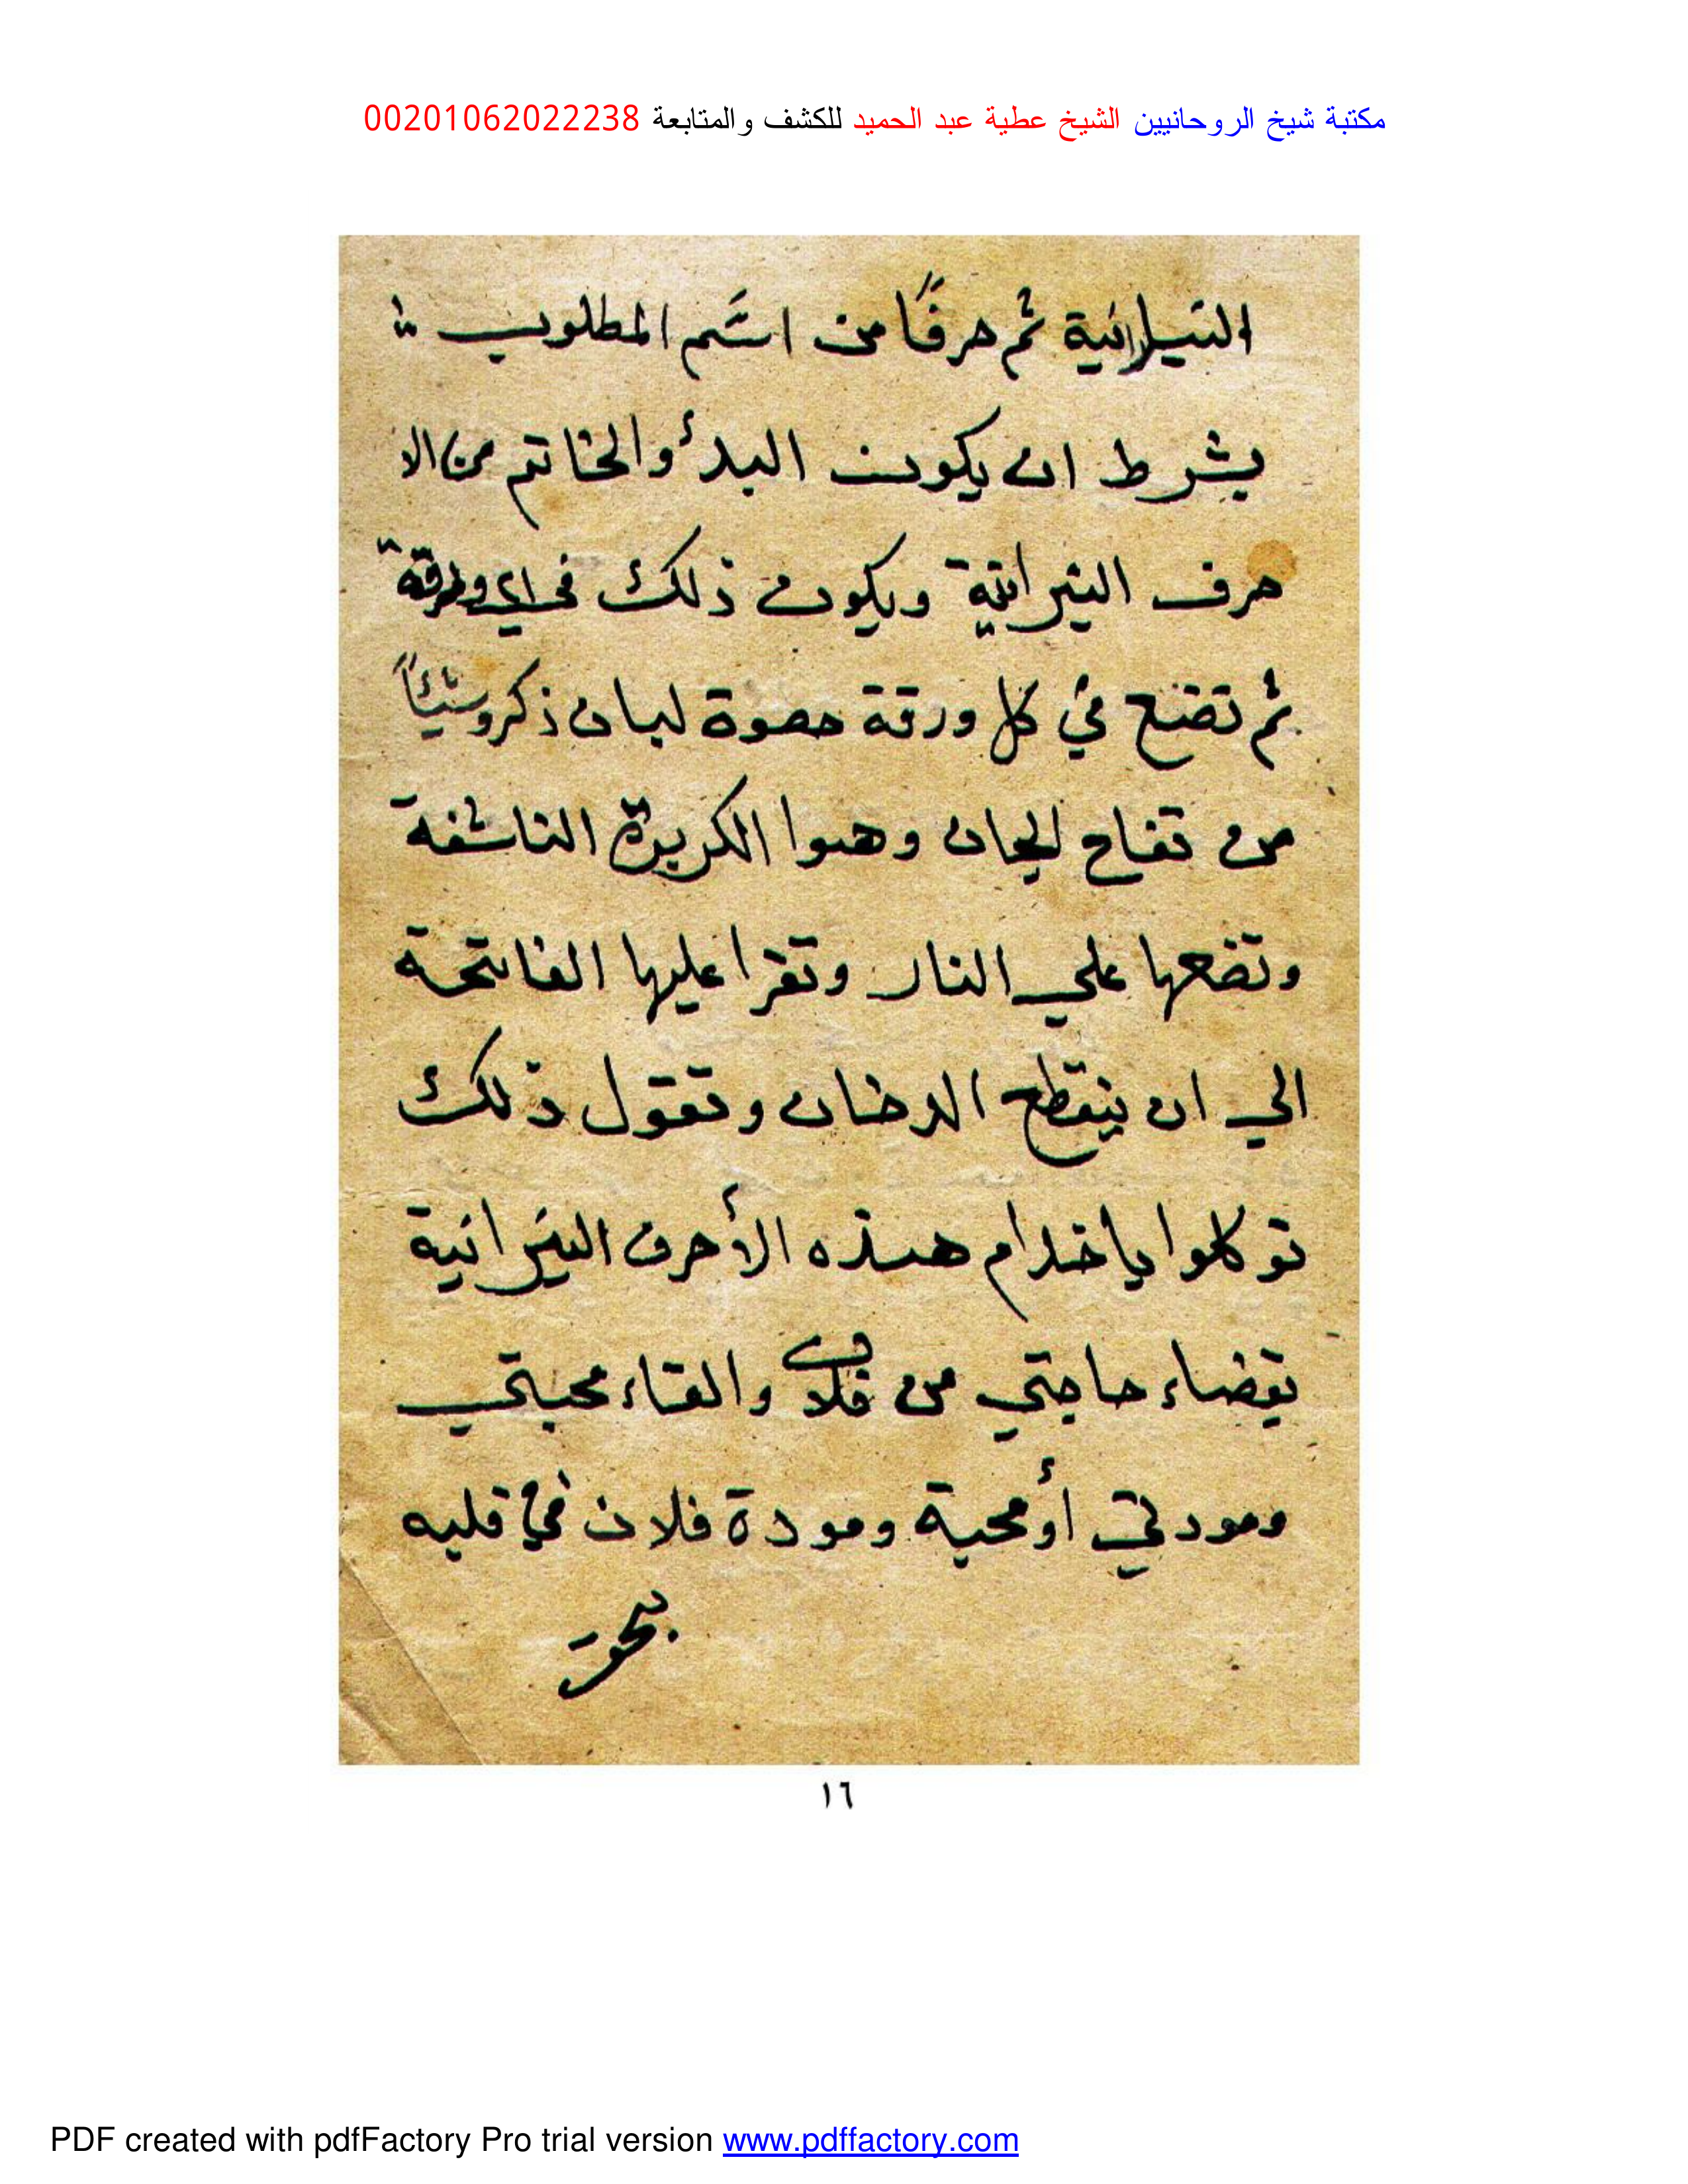 مكتبة شيخ الروحانيين الشيخ عطية عبد الحميد للكشف والمتابعة 00201062022238
النيرانية ثم حرفًا من اسم المطلوب
بشرط ان يكون البدأ والخاتم من الا
حرف النيرانية ويكون ذلك في اي ورقة
ثم تضع في كل ورقة حصوة لبان ذكر وشيئاً
من تفاح الجان وهوا الكزبرة الناشفة
وتضعها علي النار وتقرا عليها الفاتحة
الي ان ينقطع الدخان وتقول ذلك
توكلوا يا خدام هذه الأحرف النيرانية
بقضاء حاجتي من فلان والقاء محبتي
ومودتي أو محبة ومودة فلان في قلبه
بحق
١٦
PDF created with pdfFactory Pro trial version www.pdffactory.com